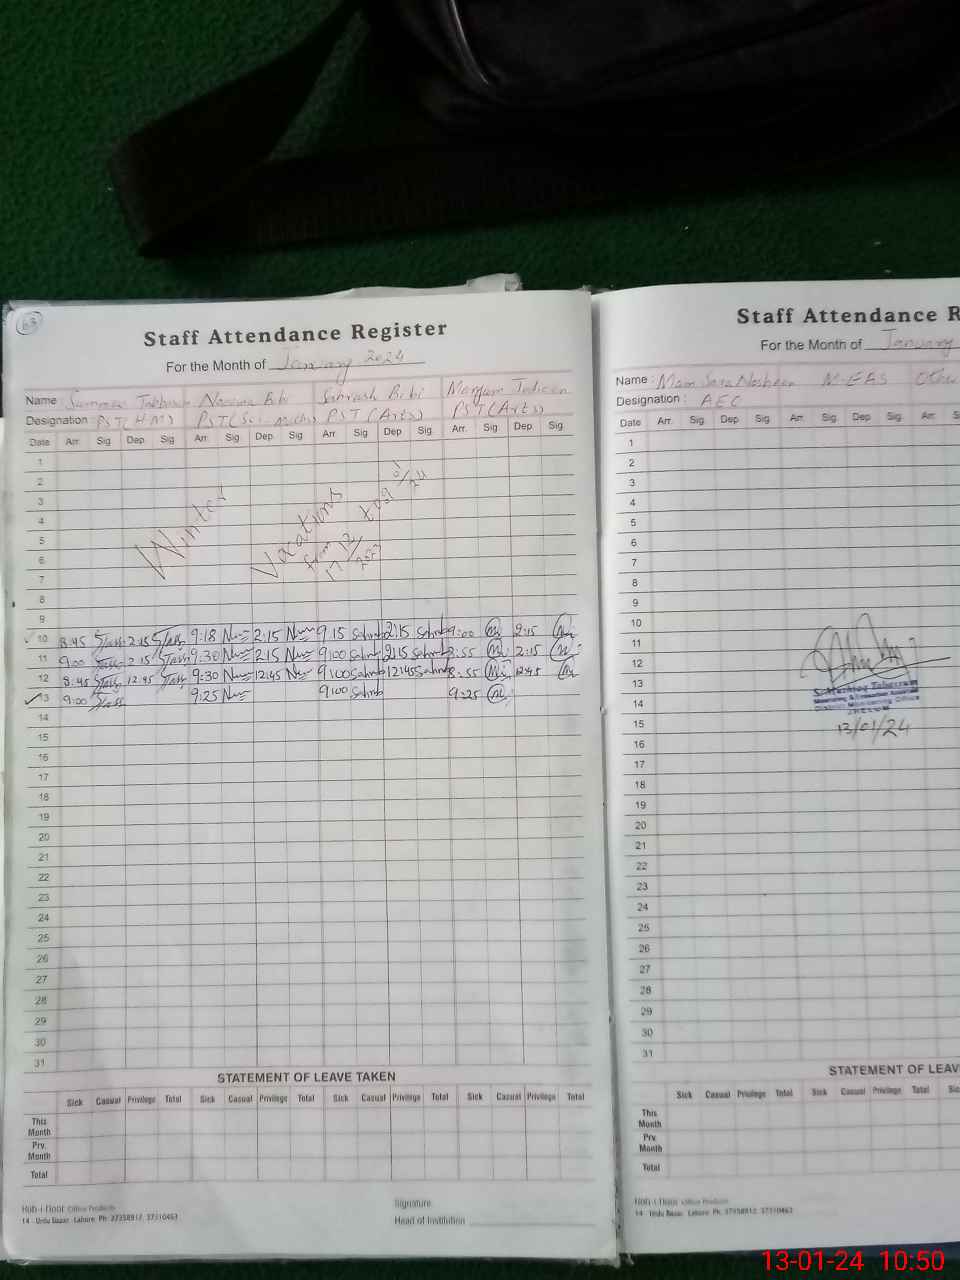 63
Staff Attendance Register
For the Month of January 2024
Name : Bibi Bibi
Designation : PST (H.M) PST (Sci-Math) PST (Arts) PST (Arts)
Date Arr. Sig Dep Sig Arr. Sig Dep. Sig Arr Sig. Dep Sig. Arr. Sig Dep Sig
1
2
3
4
5
6
7
8
Winter Vacations
from 17/12/2023 to 9/01/24
9
10 8:45 2:15 9:18 2:15 9:15 2:15 9:00 2:15
11 9:00 2:15 9:30 2:15 9:00 2:15 8:55 2:15
12 8:45 12:45 9:30 12:45 9:00 12:45 8:55 12:45
13 9:00 9:25 9:00 9:25
14
15
16
17
18
19
20
21
22
23
24
25
26
27
28
29
30
31
STATEMENT OF LEAVE TAKEN
Sick Casual Privilege Total Sick Casual Privilege Total Sick Casual Privilege Total Sick Casual Privilege Total
This Month
Prv. Month
Total
Office Products
14 - Urdu Bazar Lahore Ph: 37358917 37310463
Signature
Head of Institution
Staff Attendance R
For the Month of January
Name : Mam Sara Nosheen M-EAS Other
Designation : AEO
Date Arr. Sig. Dep. Sig. Arr. Sig. Dep. Sig. Arr Sig
1
2
3
4
5
6
7
8
9
10
11
12
13
14
15
16
17
18
19
20
21
22
23
24
25
26
27
28
29
30
31
District Monitoring Officer
JHELUM
13/01/24
STATEMENT OF LEAV
Sick Casual Privilege Total Sick Casual Privilege Total Sic
This Month
Prv. Month
Total
Office Products
14 - Urdu Bazar Lahore Ph: 37358917 37310463
13-01-24 10:50